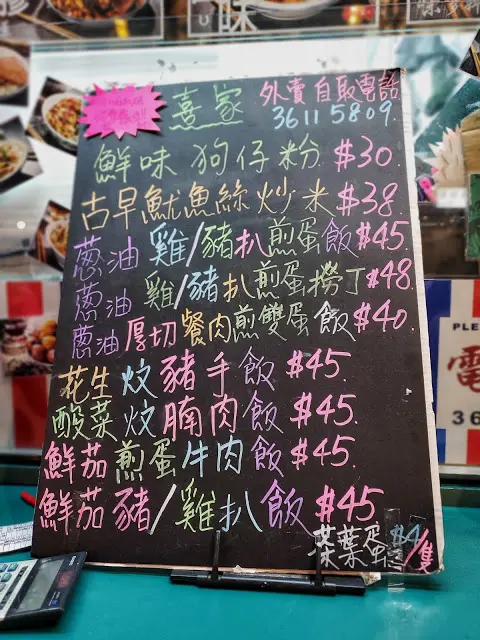 味
熹家 外賣自取電話
3611 5809
鮮味狗仔粉 $30.
古早魷魚絲炒米 $38
蔥油雞/豬扒煎蛋飯 $45
蔥油雞/豬扒煎蛋撈丁 $48
蔥油厚切餐肉煎雙蛋飯 $40
花生炆豬手飯 $45.
酸菜炆腩肉飯 $45.
鮮茄煎蛋牛肉飯 $45.
鮮茄豬/雞扒飯 $45
茶葉蛋 $4/隻
PLE
電
36